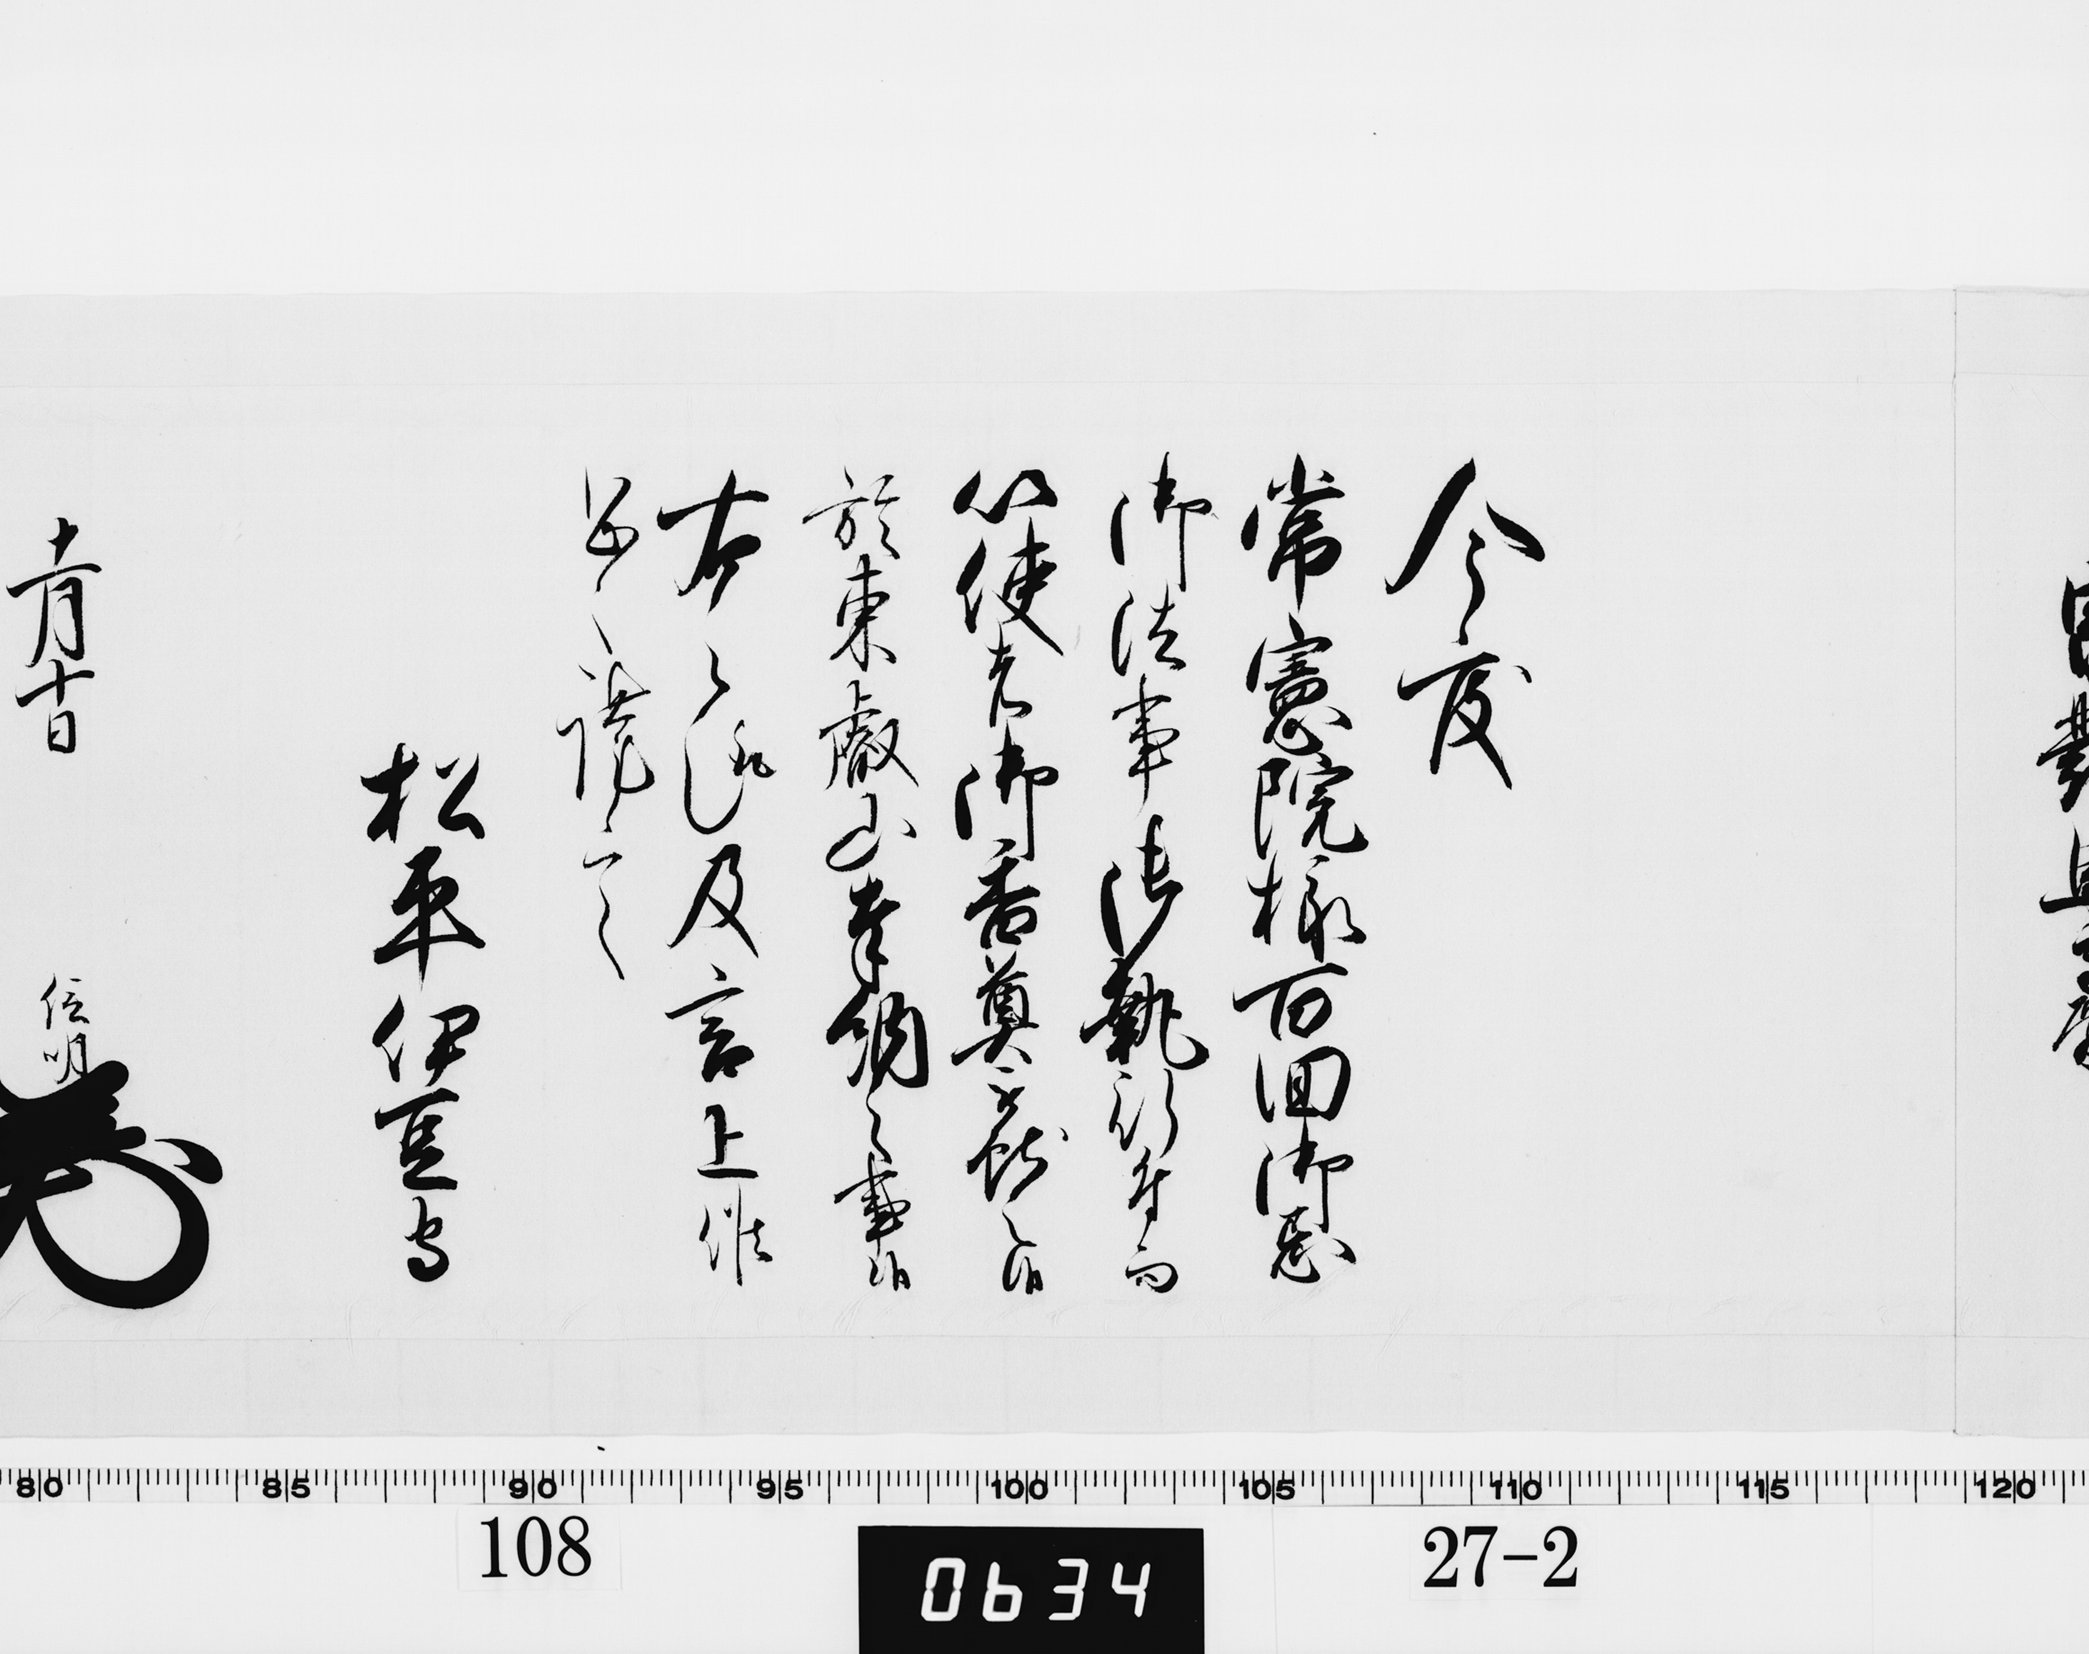 今度
常憲院様百回御忌
御法事御執行付而
以使者御香奠被献之候
於東叡山奉納之事候
右之趣及言上候
恐々謹言
松平伊豆守
十一月十日 信明
80 85 90 95 100 105 110 115 120
108
0634
27-2